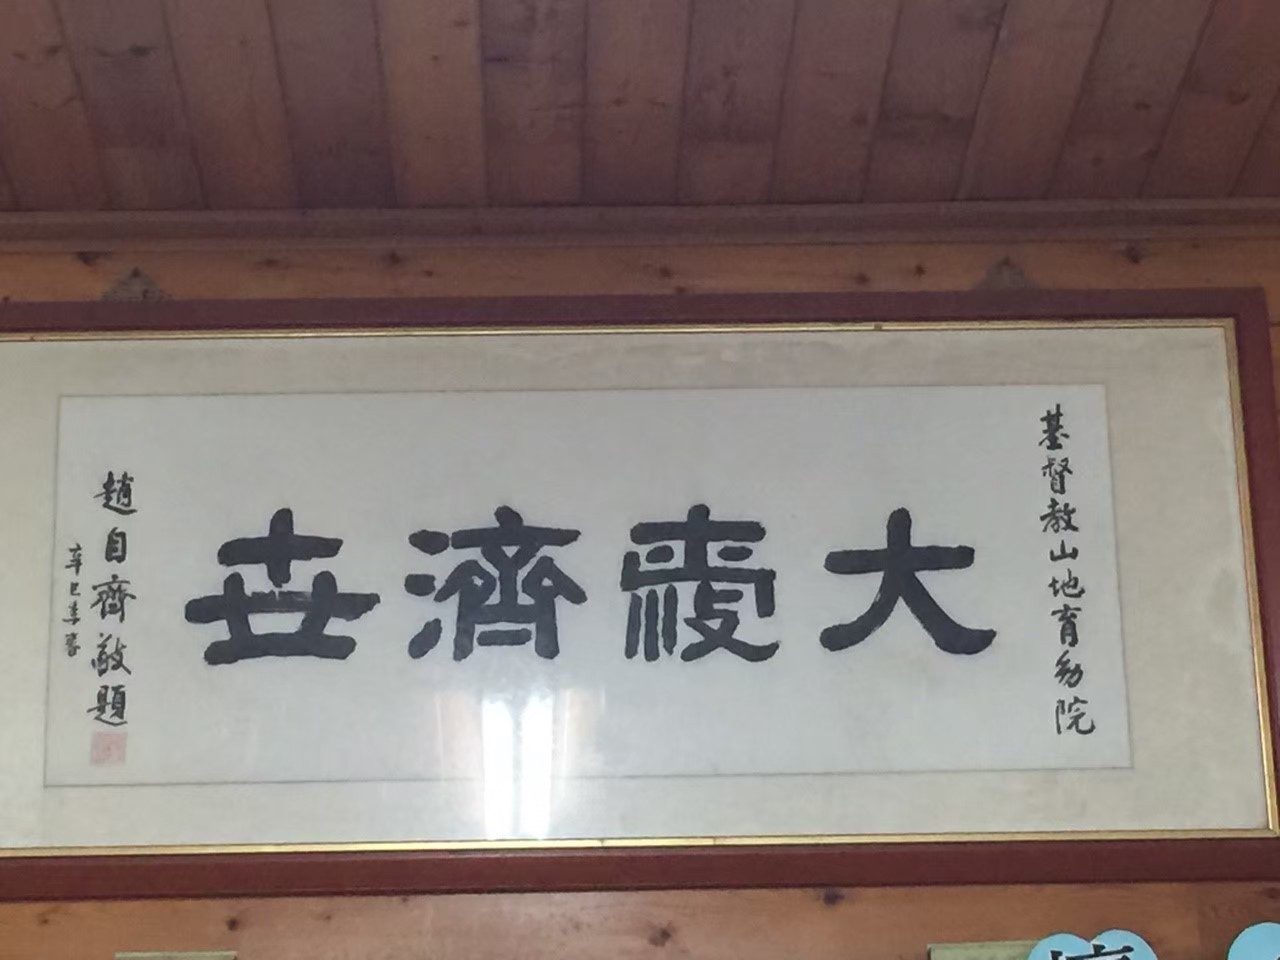 基督教山地育幼院
大愛濟世
趙自齊敬題
辛巳季春